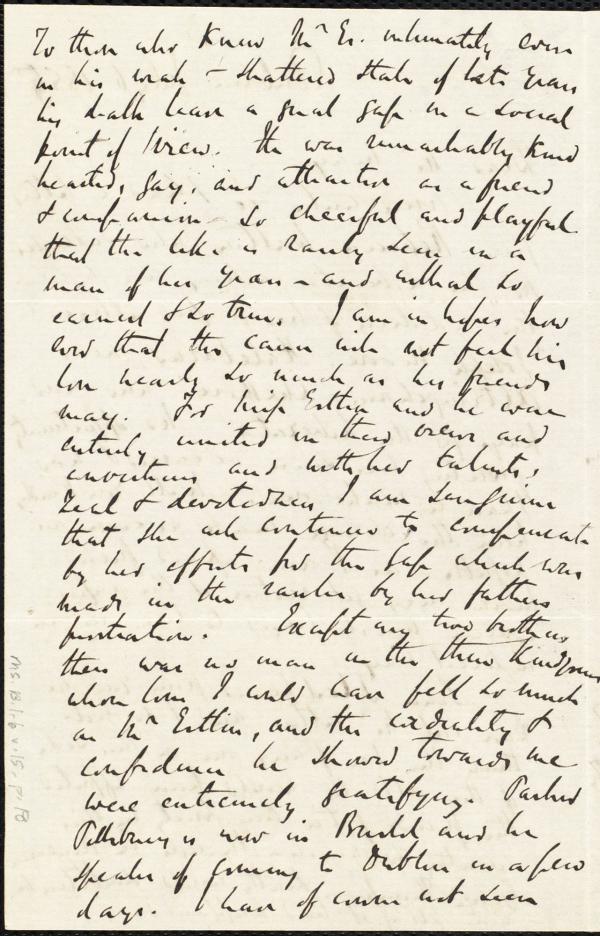 To those who knew Mr Es. intimately even
in his weak & shattered state of late years
his death leaves a great gap in a social
point of view. He was remarkably kind
hearted, gay, and attractive as a friend
& companion – so cheerful and playful
that the like is rarely seen in a
man of his years – and withal so
earnest & so true. I am in hopes how
ever that the cause will not feel his
loss nearly so much as his friends
may. For Miss Estlin and he were
entirely united in their views and
convictions and with her talents,
zeal & devotedness I am sanguine
that she will continue to compensate
by her efforts for the gap which was
made in the ranks by her fathers
prostration. Except my two brothers
there was no man in the three Kingdoms
whose loss I could have felt so much
as Mr Estlin, and the cordiality &
confidence he showed towards me
were extremely gratifying. Parker
Pillsbury is now in Bristol and he
speaks of coming to Dublin in a few
days. I have of course not seen
Ms. B.1.6 v.